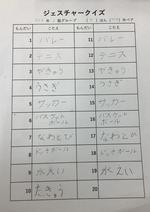 ジェスチャークイズ
もんだい こたえ もんだい こたえ
1 バレー 11 バレー
2 テニス 12 テニス
3 やきゅう 13 やきゅう
4 うさぎ 14 うさぎ
5 サッカー 15 サッカー
6 バスケットボール 16 バスケットボール
7 なわとび 17 なわとび
8 ドッチボール 18 ドッチボール
9 水えい 19 水えい
10 たっきゅう 20